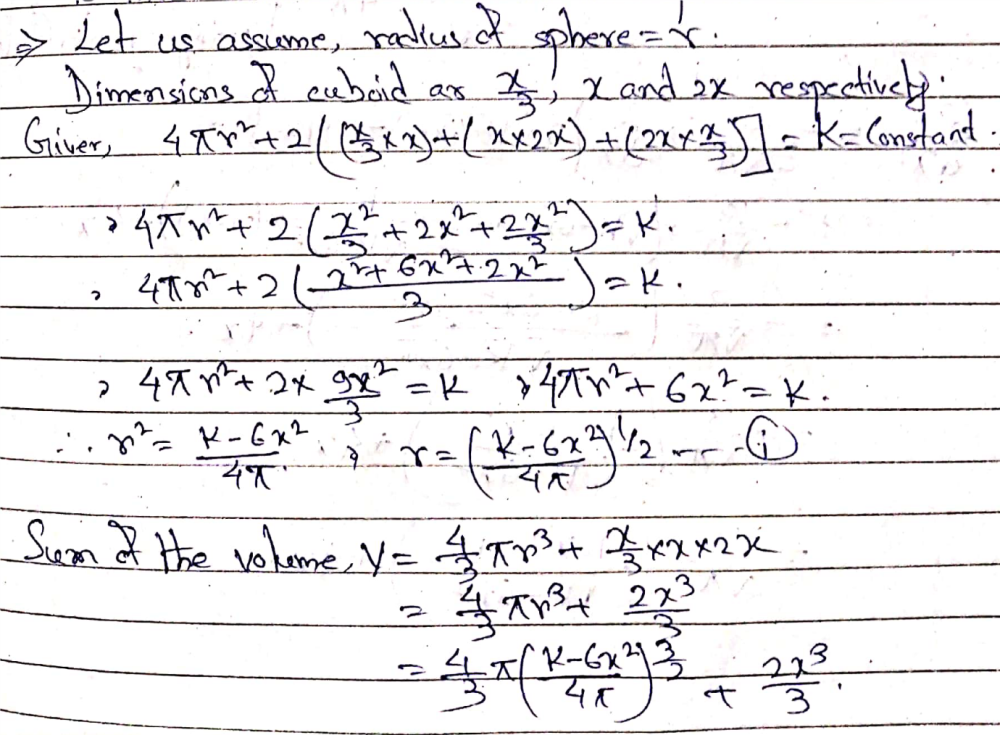 ⇒ Let us assume, radius of sphere = r.
Dimensions of cuboid are x/3, x and 2x respectively.
Given, 4πr² + 2[(x/3 × x) + (x × 2x) + (2x × x/3)] = K = Constant.
⇒ 4πr² + 2(x²/3 + 2x² + 2x²/3) = K.
⇒ 4πr² + 2((x² + 6x² + 2x²)/3) = K.
⇒ 4πr² + 2 × 9x²/3 = K ⇒ 4πr² + 6x² = K.
∴ r² = (K - 6x²)/4π ⇒ r = ((K - 6x²)/4π)^1/2 --- (i)
Sum of the volume, V = 4/3 πr³ + x/3 × x × 2x.
= 4/3 πr³ + 2x³/3
= 4/3 π((K - 6x²)/4π)^3/2 + 2x³/3.